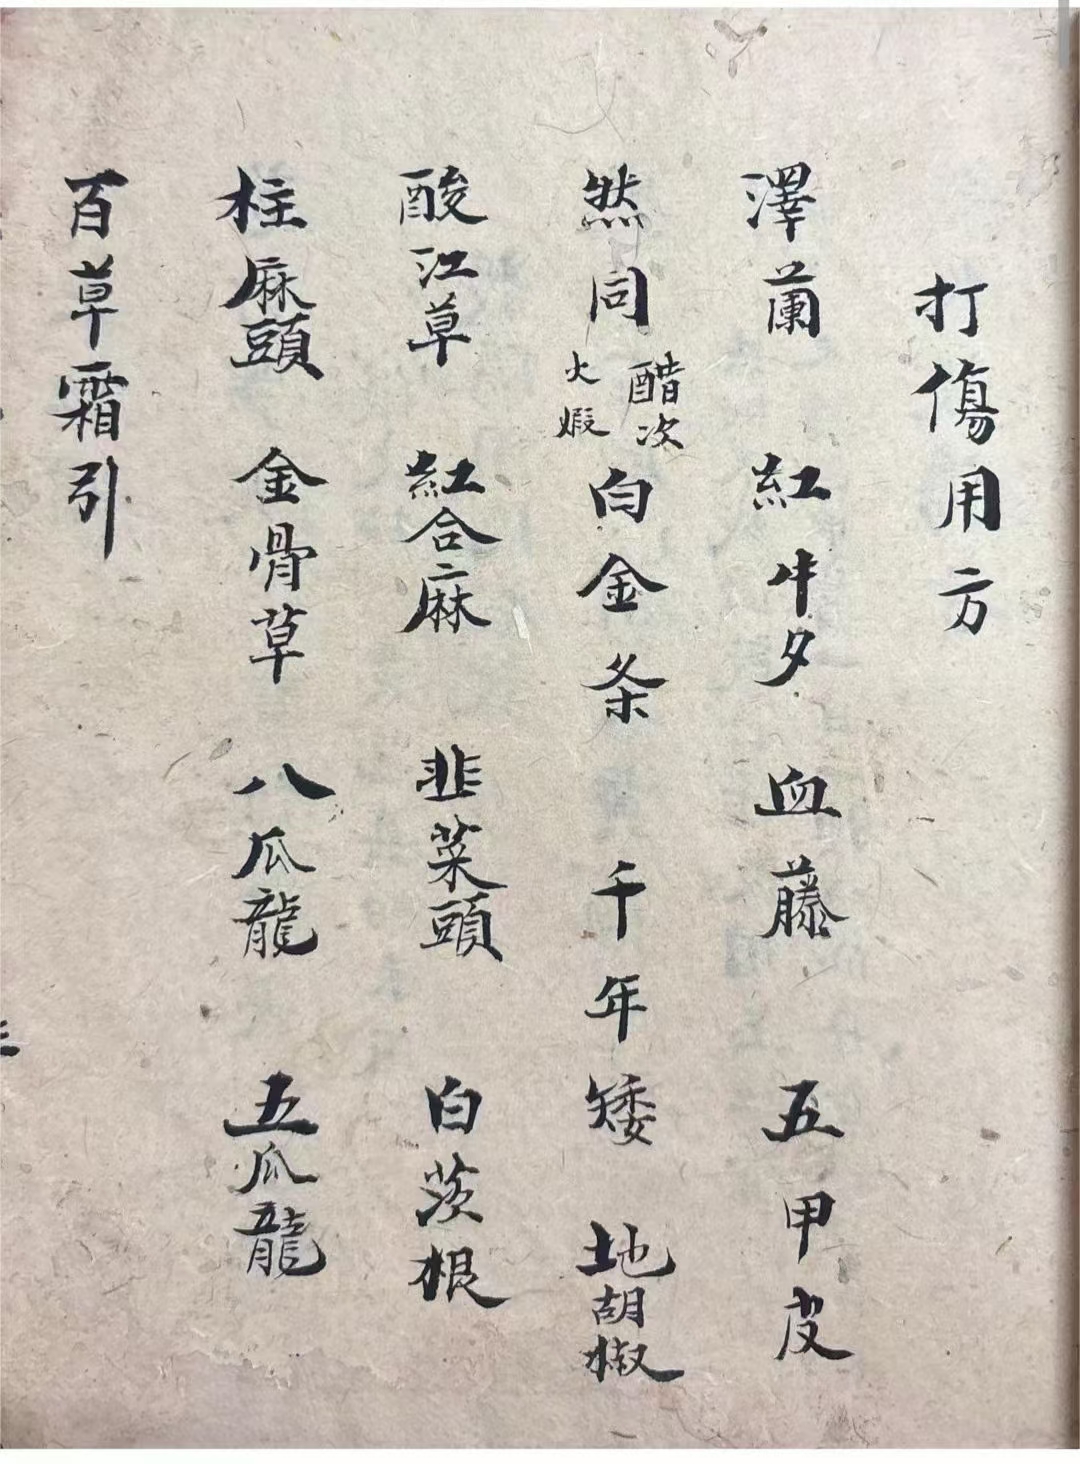 打傷用方
澤蘭 紅牛夕 血藤 五甲皮
然同 醋次火煆 白金条 千年矮 地胡椒
酸江草 紅合麻 韭菜頭 白茨根
柱麻頭 金骨草 八瓜龍 五瓜龍
百草霜引